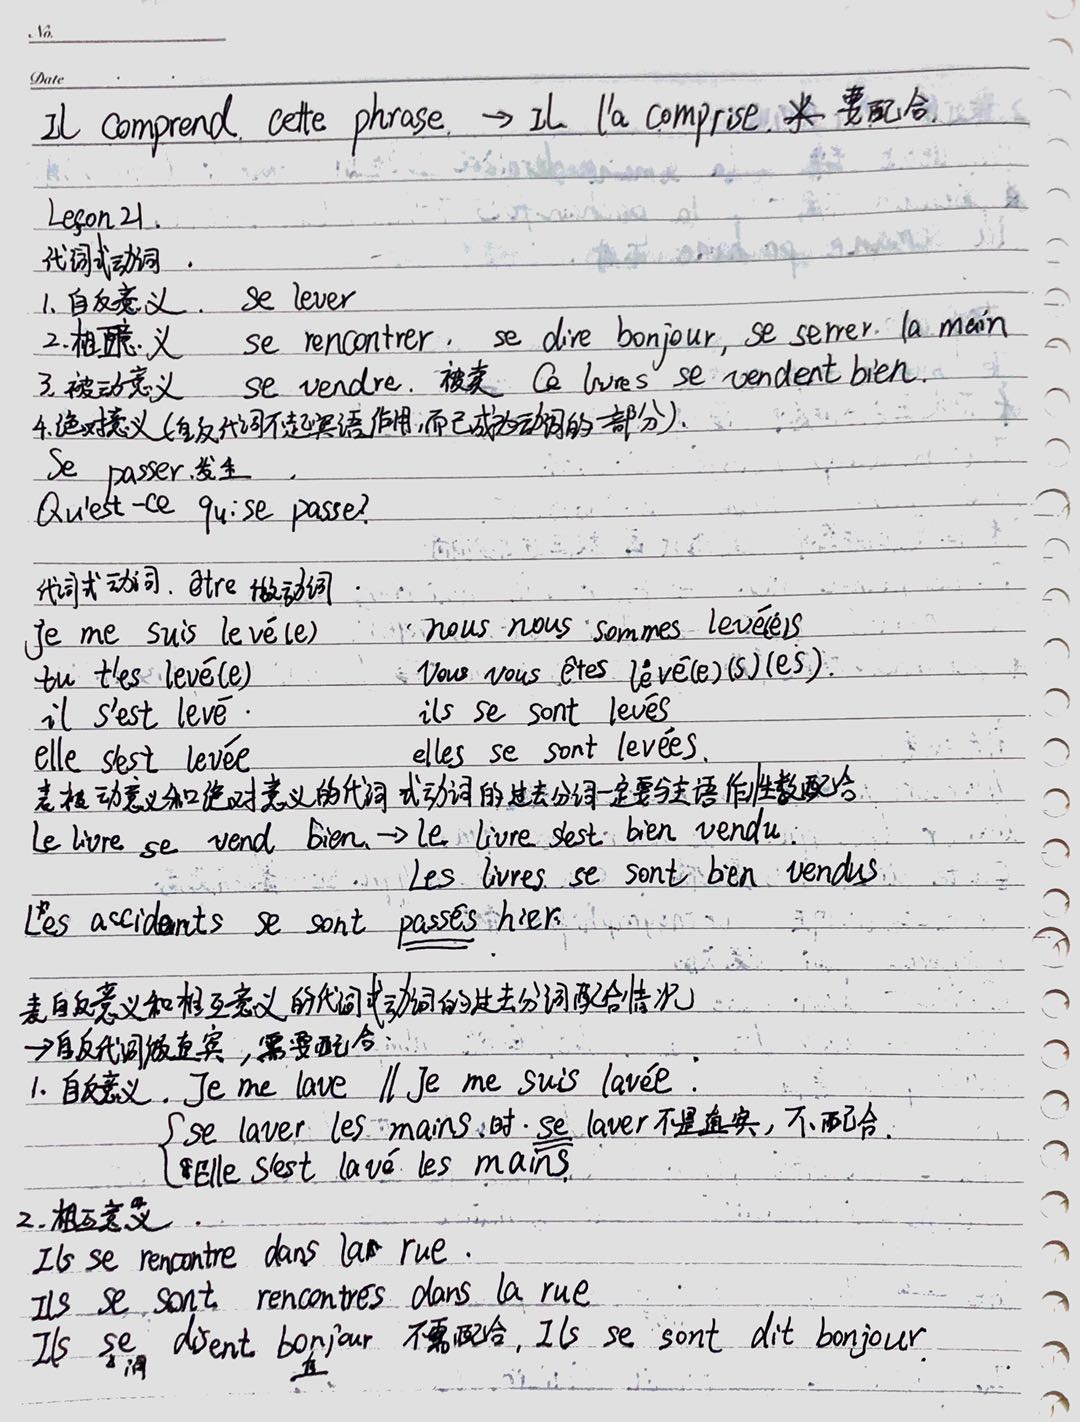 No.
Date
Il comprend cette phrase. → Il l'a comprise. ※ 要配合.
Leçon 21.
代词式动词.
1. 自反意义. se lever
2. 相互意义 se rencontrer. se dire bonjour, se serrer la main
3. 被动意义 se vendre. 被卖 Ce livres se vendent bien.
4. 绝对意义(自反代词不起宾语作用,而已成为动词的一部分).
Se passer 发生.
Qu'est-ce qui se passe?
代词式动词. être 做动词.
Je me suis levé(e) nous nous sommes levé(e)s
tu t'es levé(e) Vous vous êtes levé(e)(s)(es).
il s'est levé. ils se sont levés
elle s'est levée elles se sont levées.
表被动意义和绝对意义的代词式动词的过去分词一定要与主语作性数配合
Le livre se vend bien. → Le livre s'est bien vendu.
Les livres se sont bien vendus
Les accidents se sont passés hier.
表自反意义和相互意义的代词式动词的过去分词配合情况
→自反代词做直宾,需要配合.
1. 自反意义. Je me lave // Je me suis lavée.
se laver les mains 时. se laver 不是直宾, 不配合.
Elle s'est lavé les mains.
2. 相互意义.
Ils se rencontre dans la rue.
Ils se sont rencontrés dans la rue
Ils se disent bonjour 不需配合, Ils se sont dit bonjour.
直